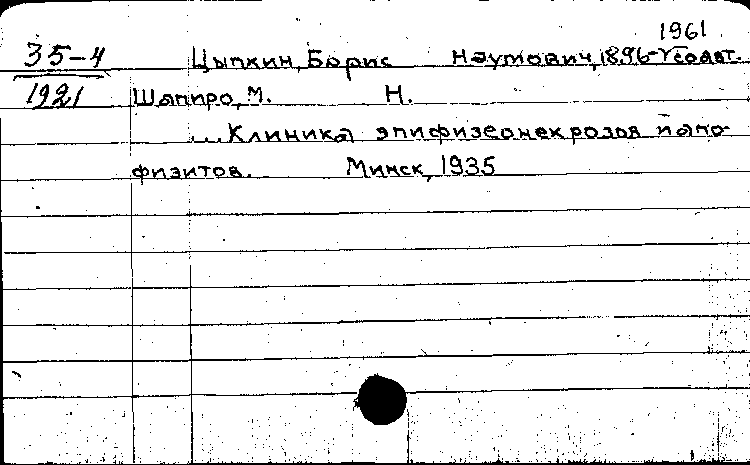 1961
35-4 Цыпкин, Борис Наумович, 1896- соавт.
1921 Шапиро, М. Н.
...Клиника эпифизеонекрозов и апо-
физитов. Минск, 1935